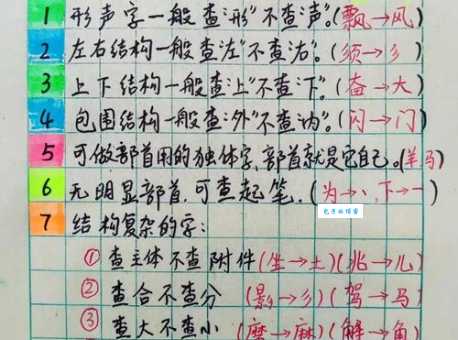 1 形声字一般查"形"不查"声"。(飘→风)
2 左右结构一般查"左"不查"右"。(须→彡)
3 上下结构一般查"上"不查"下"。(奋→大)
4 包围结构一般查"外"不查"内"。(闪→门)
5 可做部首用的独体字,部首就是它自己。(羊马)
6 无明显部首,可查起笔。(为→丶、下→一)
7 结构复杂的字:
① 查主体不查附件(坐→土)(兆→儿)
② 查合不查分 (影→彡)(驾→马)
③ 查大不查小 (磨→麻)(解→角)